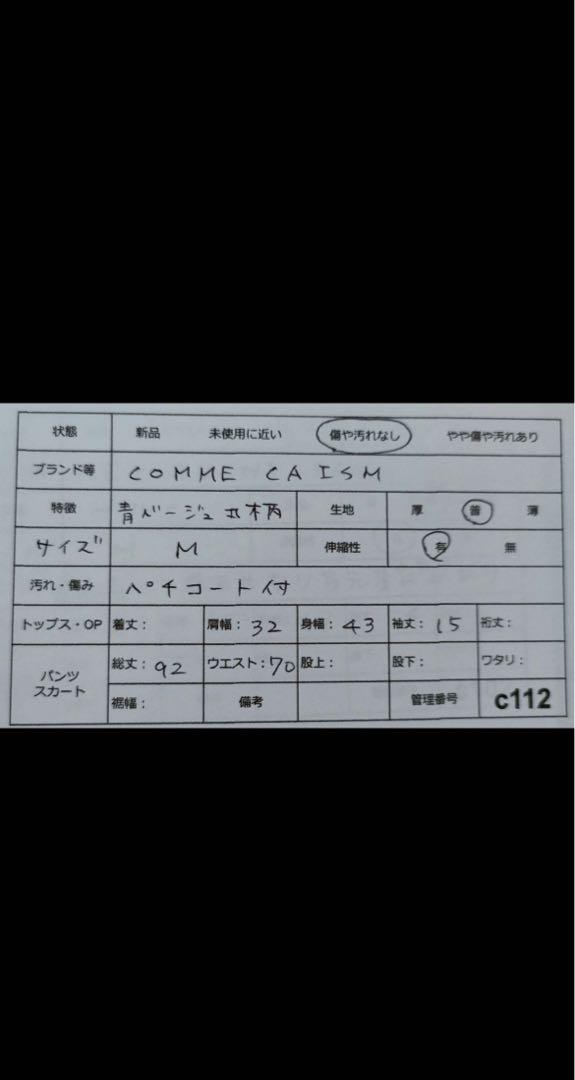 状態 新品 未使用に近い 傷や汚れなし やや傷や汚れあり
ブランド等 COMME CA ISM
特徴 青ベージュ丸柄 生地 厚 普 薄
サイズ M 伸縮性 有 無
汚れ・傷み ペチコート付
トップス・OP 着丈: 肩幅:32 身幅:43 袖丈:15 裄丈:
パンツ スカート 総丈:92 ウエスト:70 股上: 股下: ワタリ:
裾幅: 備考 管理番号 c112